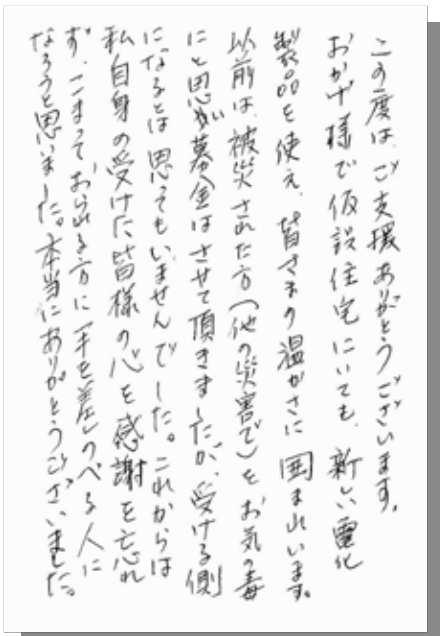 この度は、ご支援ありがとうございます。
おかげ様で仮設住宅にいても、新しい電化
製品を使え、皆さまの温かさに囲まれています。
以前は、被災された方(他の災害で)をお気の毒
にと思い募金はさせて頂きましたが、受ける側
になるとは思ってもいませんでした。これからは
私自身の受けた皆様の心を感謝を忘れ
ず、こまっておられる方に手を差しのべる人に
なろうと思いました。本当にありがとうございました。